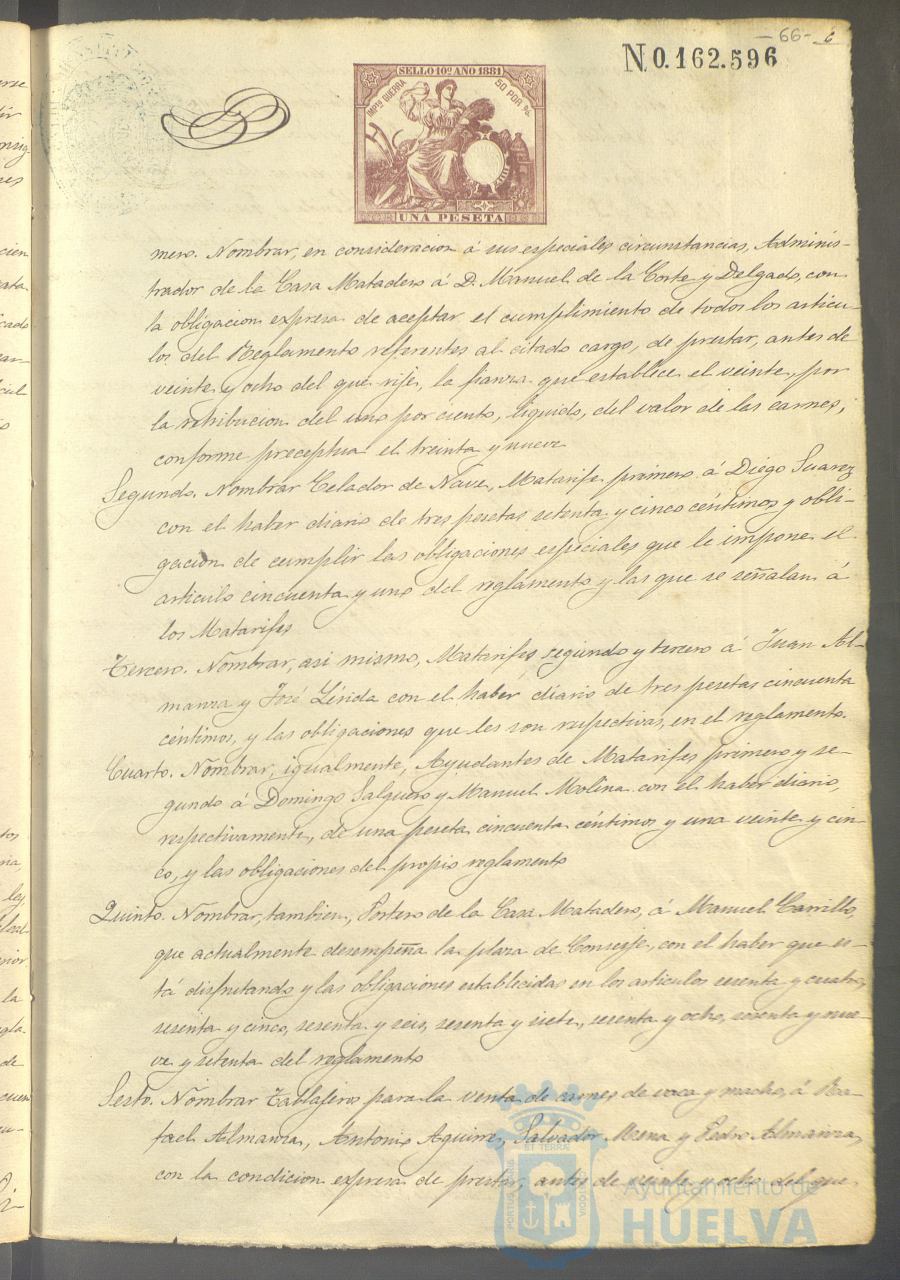 -66- 6
N 0.162.596
SELLO 10º AÑO 1881
IMPTO GUERRA
50 POR %
UNA PESETA
mero. Nombrar, en consideracion á sus especiales circunstancias, Adminis-
trador de la Casa Matadero á D. Manuel de la Corte y Delgado, con
la obligacion expresa de aceptar el cumplimiento de todos los articu-
los del Reglamento referentes al citado cargo, de prestar, antes de
veinte y ocho del que rije, la fianza que establece el veinte, por
la retribucion del uno por ciento, líquido, del valor de las carnes,
conforme preceptua el treinta y nueve
Segundo. Nombrar Celador de Nave, Matarife primero á Diego Suarez
con el haber diario de tres pesetas setenta y cinco céntimos y obli-
gacion de cumplir las obligaciones especiales que le impone el
articulo cincuenta y uno del reglamento y las que se señalan á
los Matarifes
Tercero. Nombrar, asi mismo, Matarifes segundo y tercero á Juan Al-
manza y José Lérida con el haber diario de tres pesetas cincuenta
céntimos, y las obligaciones que les son respectivas, en el reglamento.
Cuarto. Nombrar, igualmente, Ayudantes de Matarifes primero y se-
gundo á Domingo Salguero y Manuel Molina con el haber diario,
respectivamente, de una peseta cincuenta céntimos y una veinte y cin-
co, y las obligaciones del propio reglamento
Quinto. Nombrar, tambien, Portero de la Casa Matadero, á Manuel Carrillo,
que actualmente desempeña la plaza de Conserje, con el haber que es-
tá disfrutando y las obligaciones establecidas en los articulos sesenta y cuatro,
sesenta y cinco, sesenta y seis, sesenta y siete, sesenta y ocho, sesenta y nue-
ve y setenta del reglamento
Sesto. Nombrar Tablajeros para la venta de carnes de vaca y macho, á Ra-
fael Almanza, Antonio Aguirre, Salvador Mena y Pedro Almanza,
con la condicion expresa de prestar, antes de veinte y ocho del que
Ayuntamiento de
HUELVA